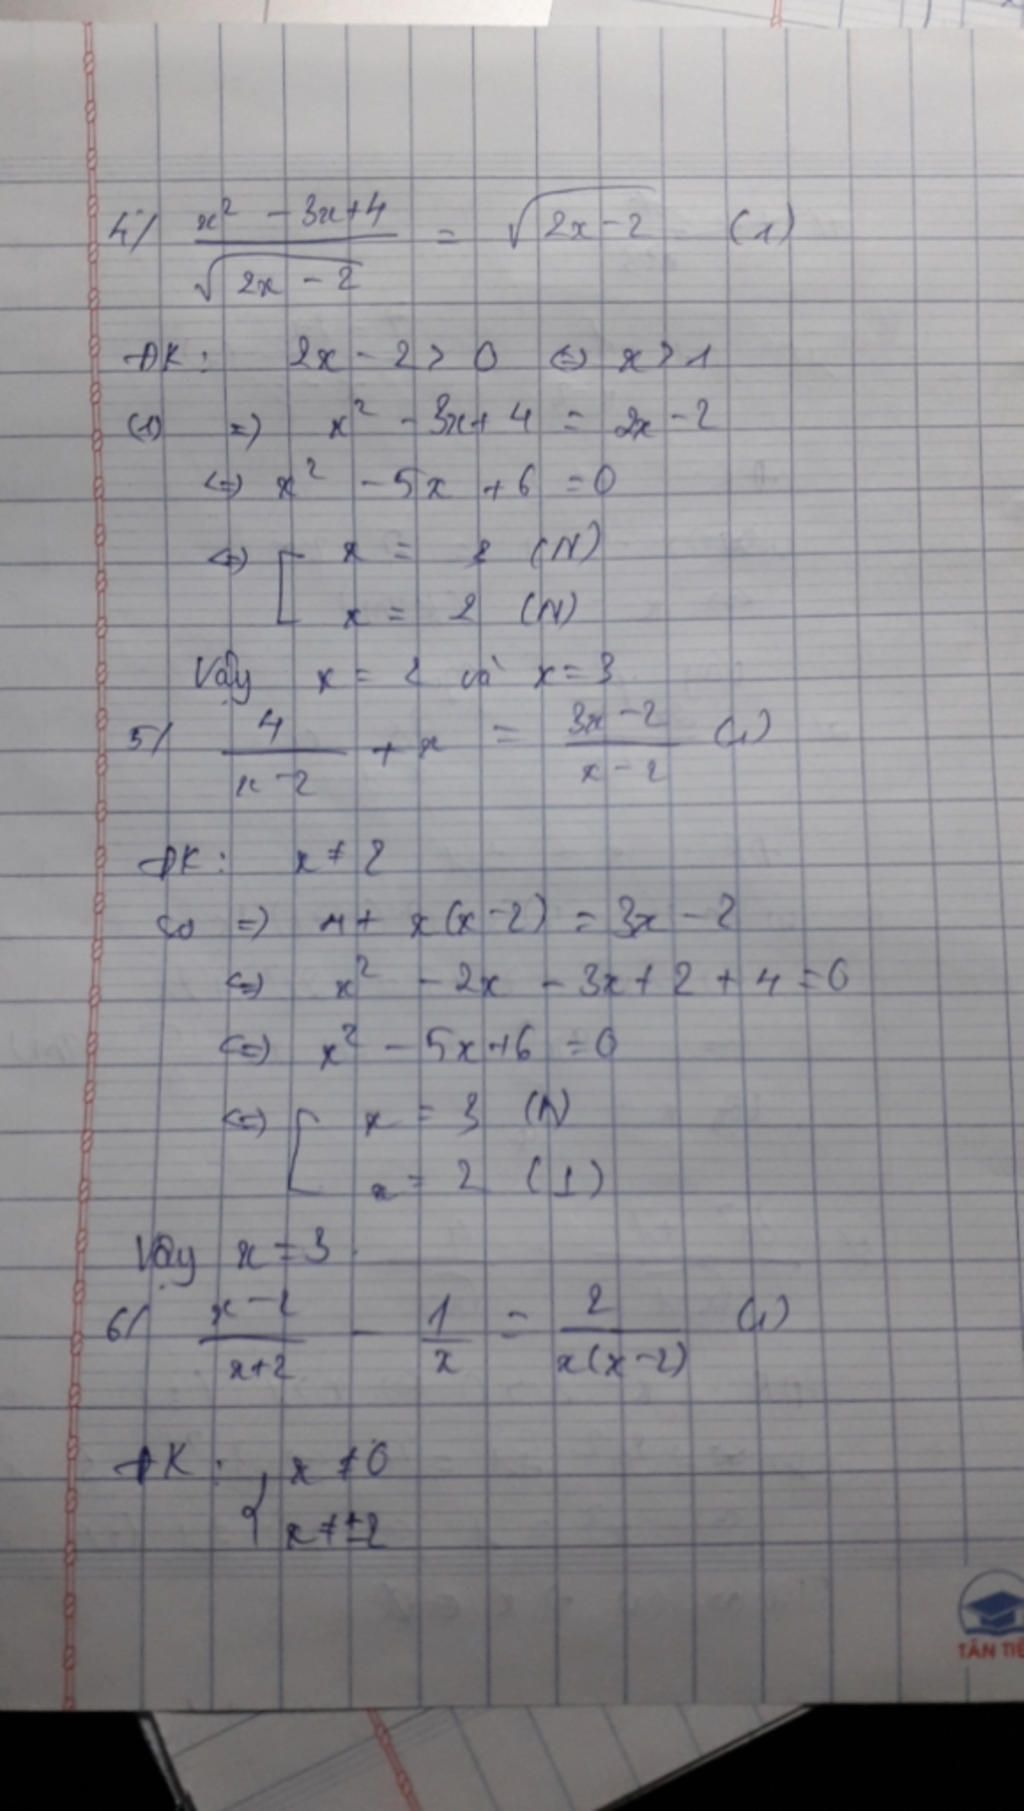 4/ (x² - 3x + 4)/√(2x - 2) = √(2x - 2) (1)
ĐK: 2x - 2 > 0 ⇔ x > 1
(1) ⇒ x² - 3x + 4 = 2x - 2
⇔ x² - 5x + 6 = 0
⇔ [ x = 3 (N)
x = 2 (N)
Vậy x = 2 và x = 3
5/ 4/(x - 2) + x = (3x - 2)/(x - 2) (1)
ĐK: x ≠ 2
(1) ⇒ 4 + x(x - 2) = 3x - 2
⇔ x² - 2x - 3x + 2 + 4 = 0
⇔ x² - 5x + 6 = 0
⇔ [ x = 3 (N)
x = 2 (L)
Vậy x = 3
6/ (x - 2)/(x + 2) - 1/x = 2/(x(x - 2)) (1)
ĐK: { x ≠ 0
x ≠ ±2